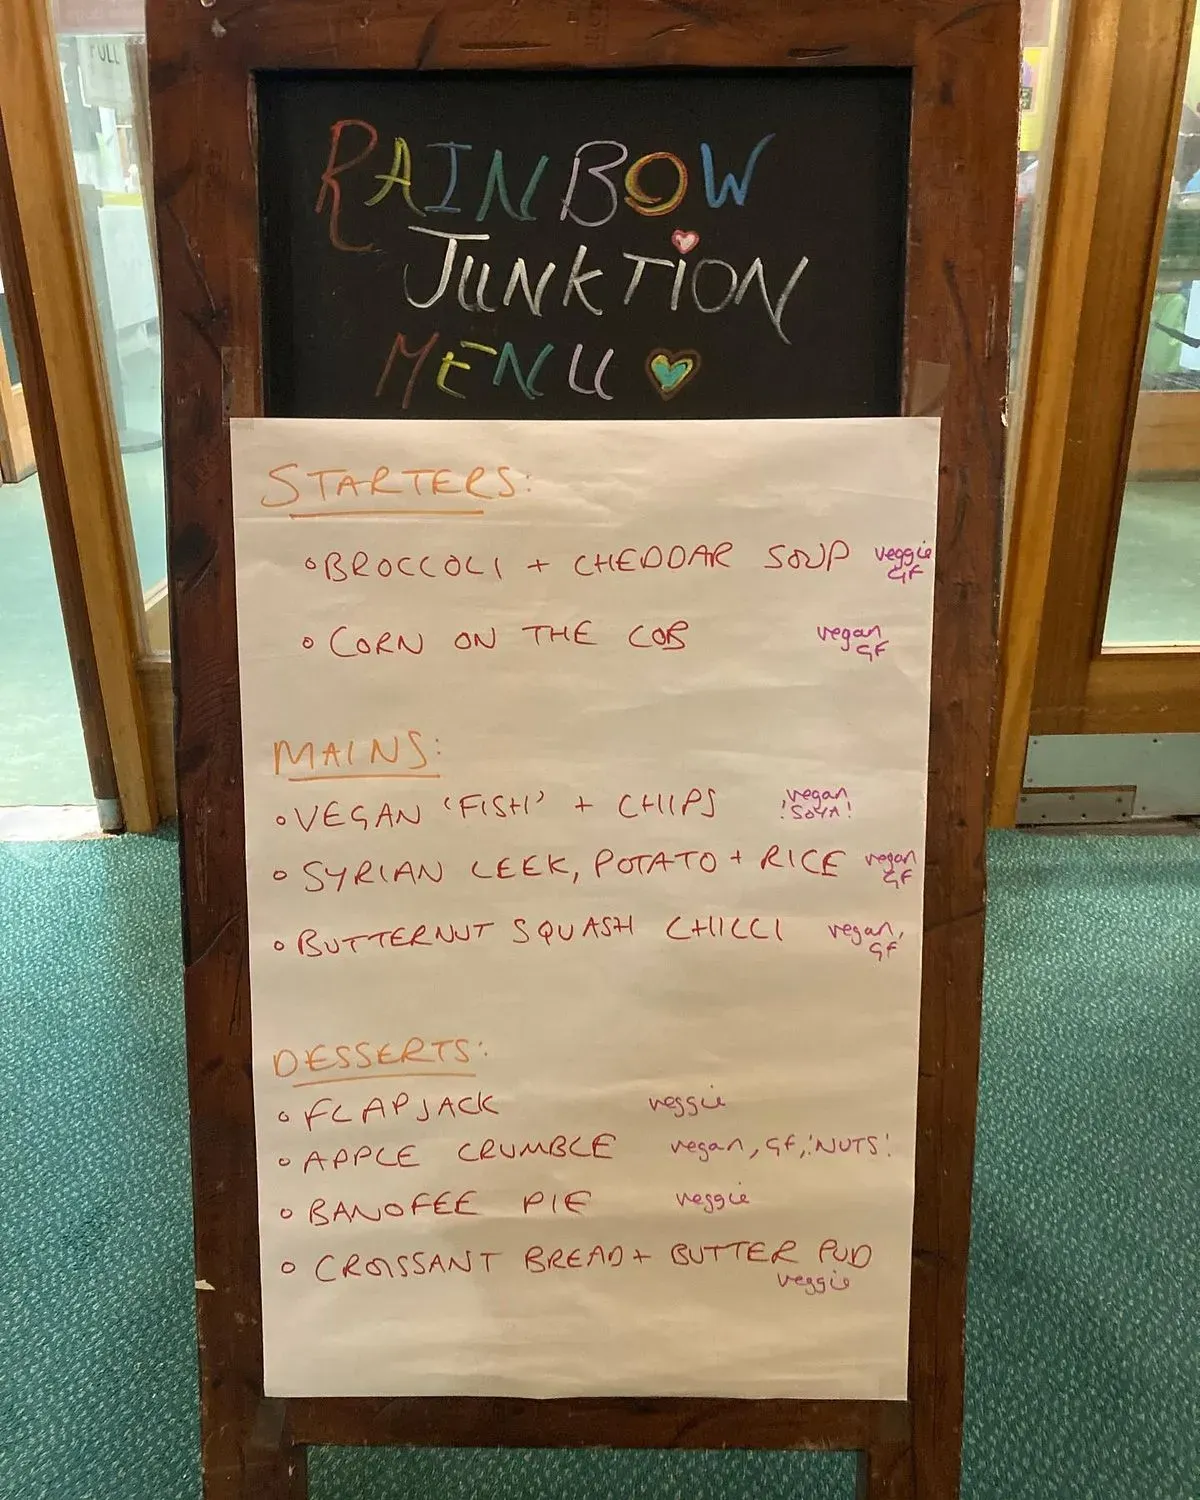 PULL
RAINBOW
JUNKTION
MENU
STARTERS:
BROCCOLI + CHEDDAR SOUP veggie
GF
CORN ON THE COB vegan
GF
MAINS:
VEGAN 'FISH' + CHIPS vegan
!SOYA!
SYRIAN LEEK, POTATO + RICE vegan
GF
BUTTERNUT SQUASH CHILLI vegan,
GF
DESSERTS:
FLAPJACK veggie
APPLE CRUMBLE vegan, GF, !NUTS!
BANOFEE PIE veggie
CROISSANT BREAD + BUTTER PUD
veggie